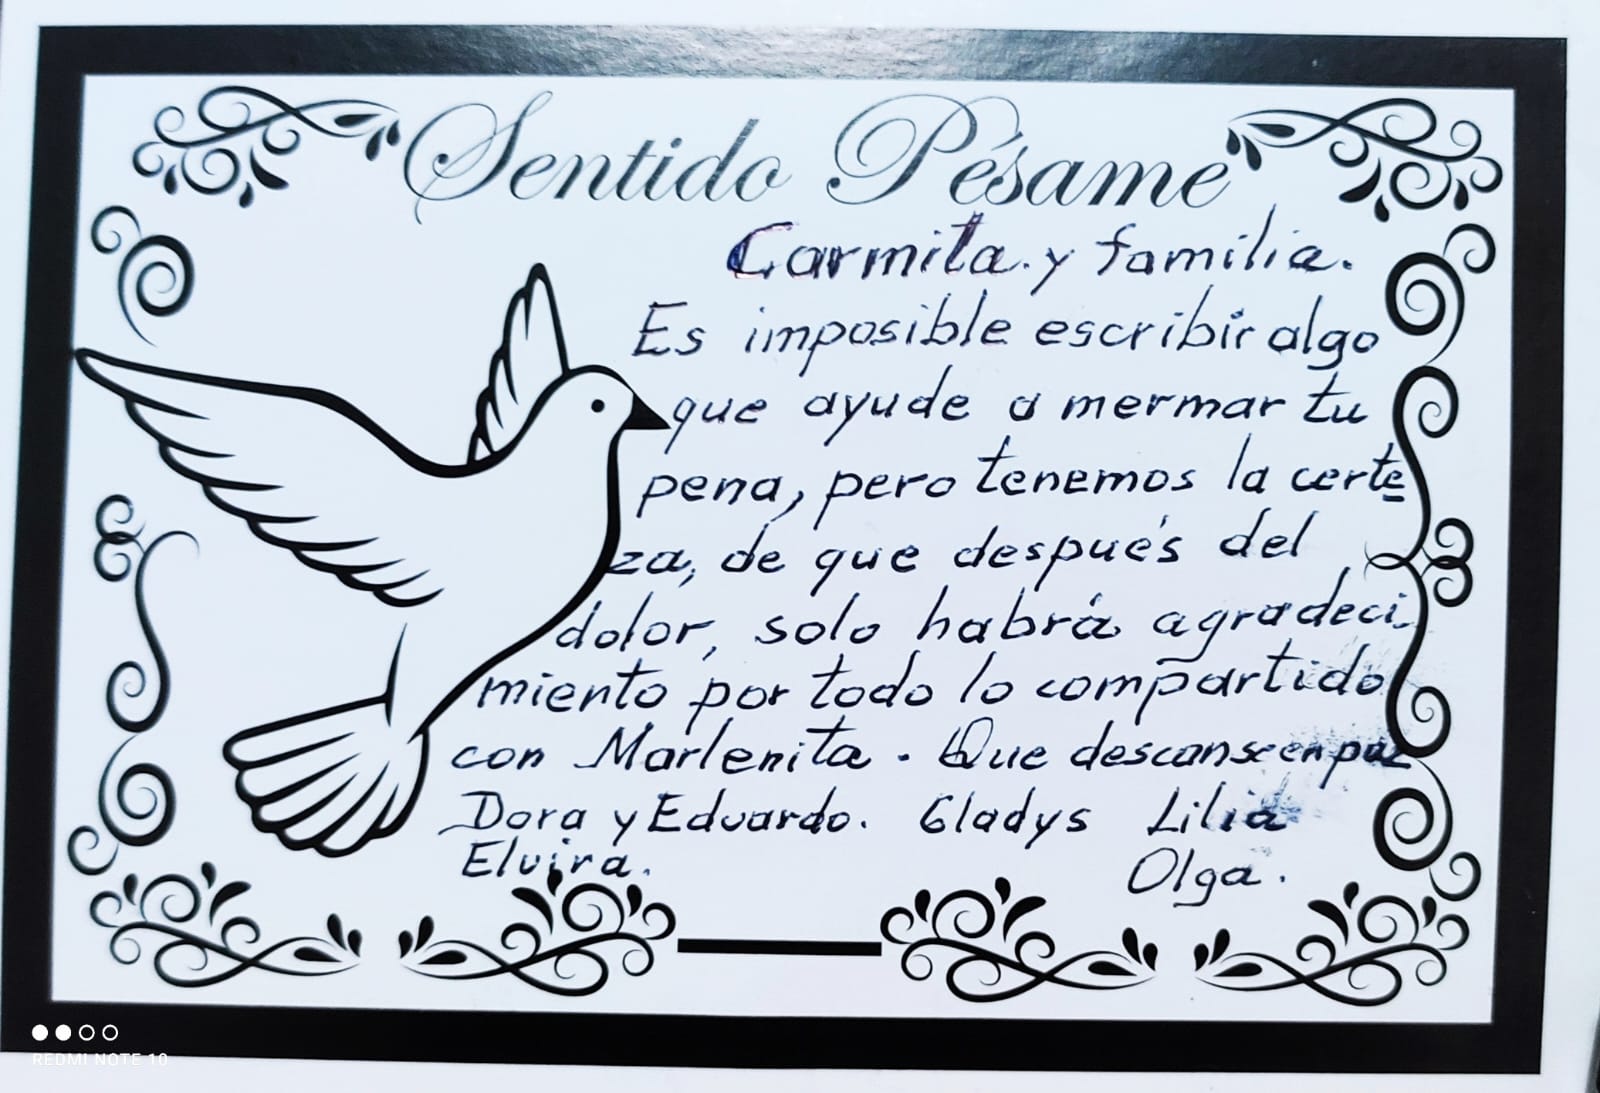 Sentido Pésame
Carmita. y familia.
Es imposible escribir algo
que ayude a mermar tu
pena, pero tenemos la certe
za, de que después del
dolor, solo habrá agradeci
miento por todo lo compartido
con Marlenita. Que descanse en paz
Dora y Eduardo. Gladys Lilia
Elvira. Olga.
REDMI NOTE 10